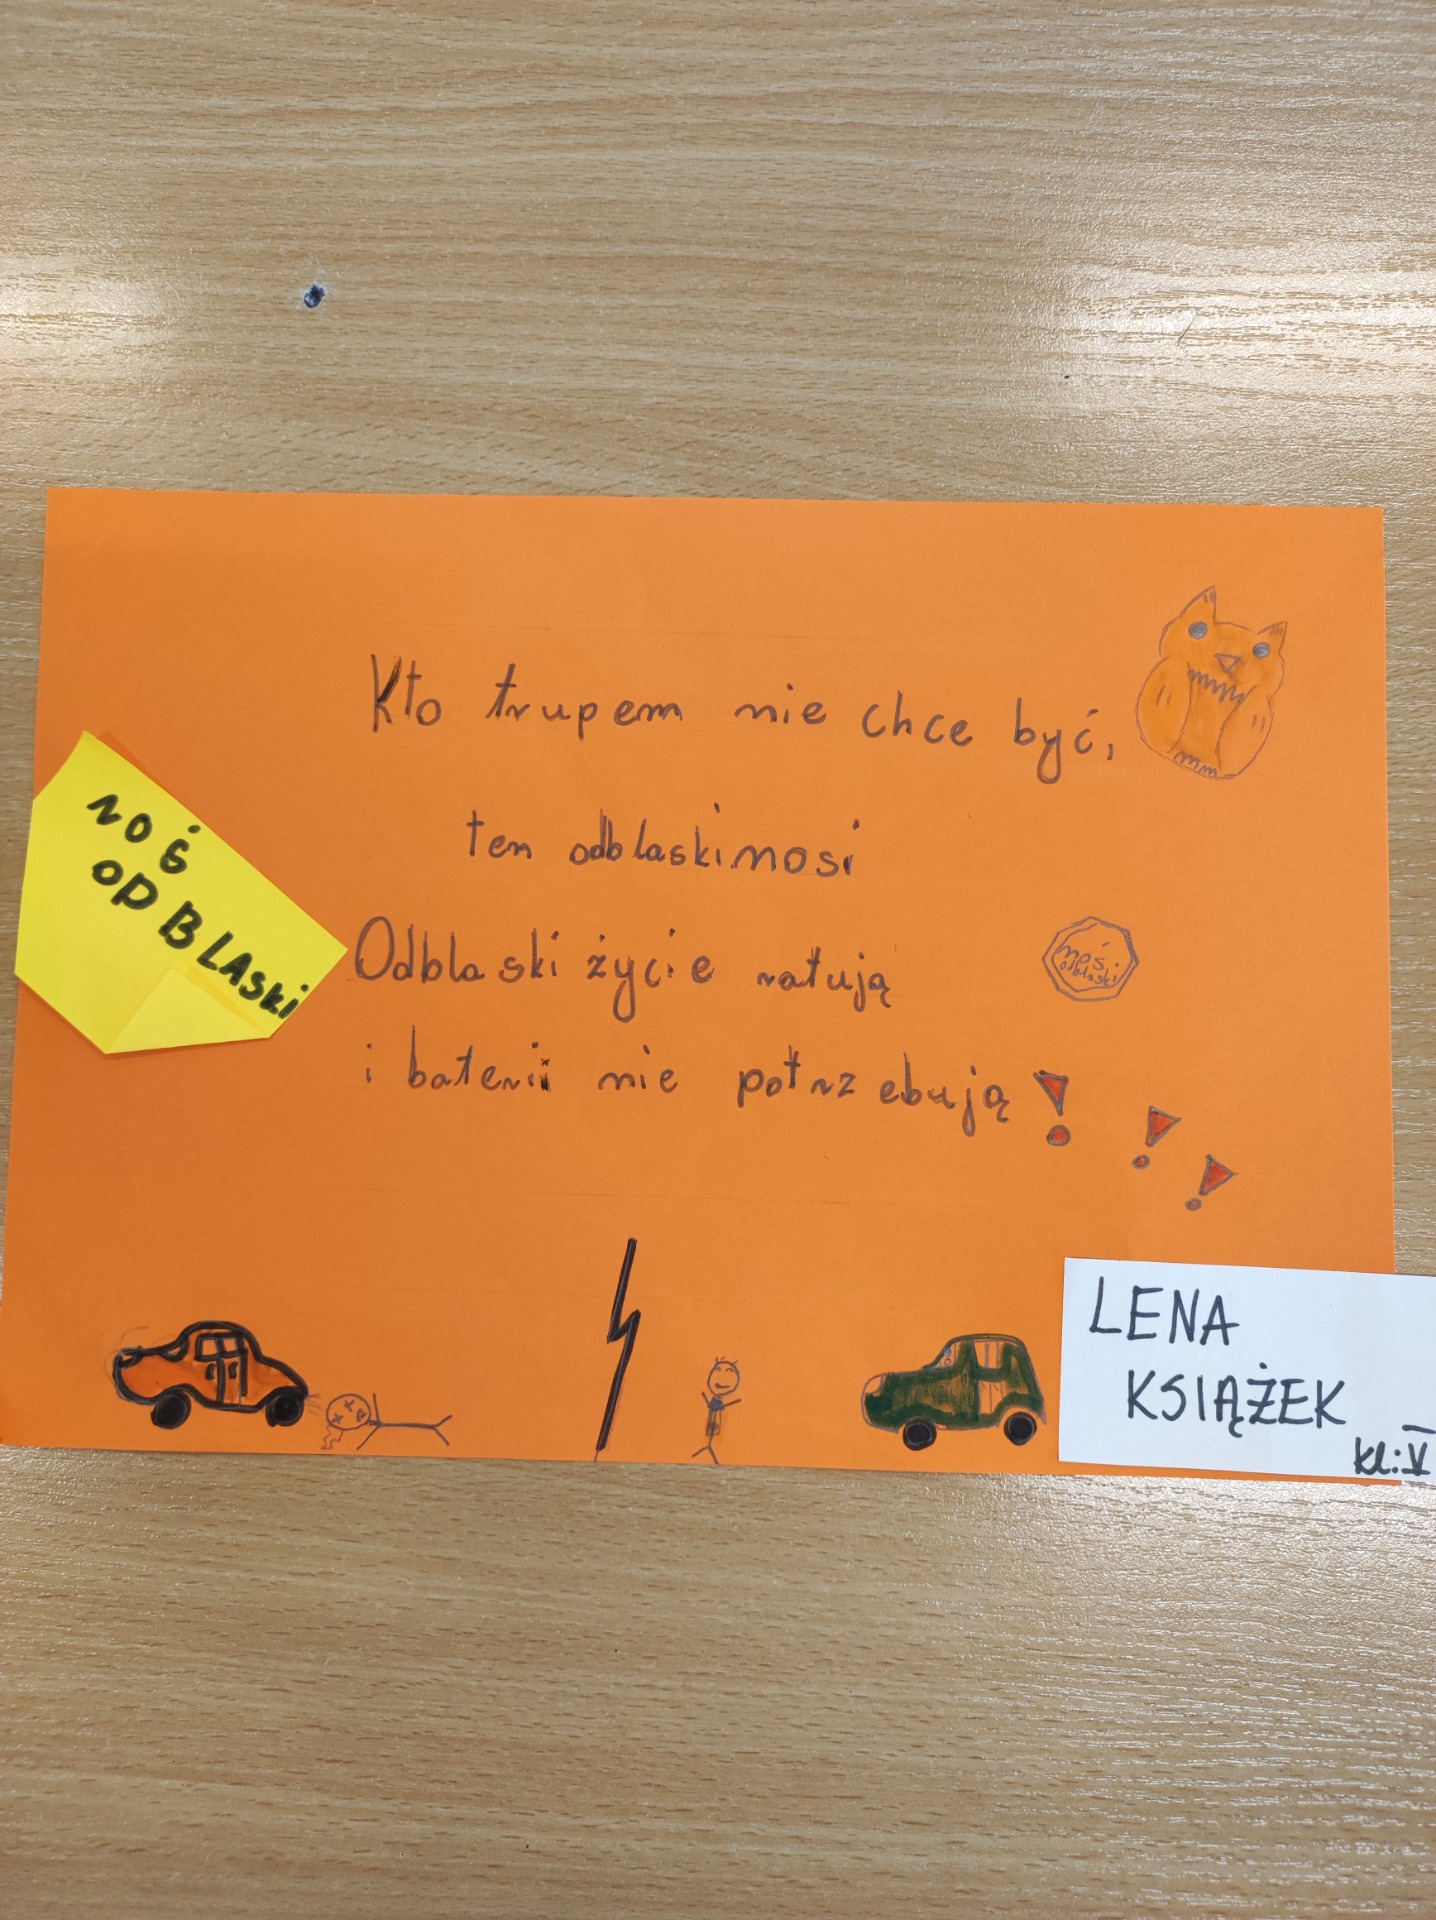 Kto trupem nie chce być,
ten odblaski nosi
Odblaski życie ratują
i baterii nie potrzebują!!!
NOŚ
ODBLASKI
noś
odblaski
LENA
KSIĄŻEK
kl:V